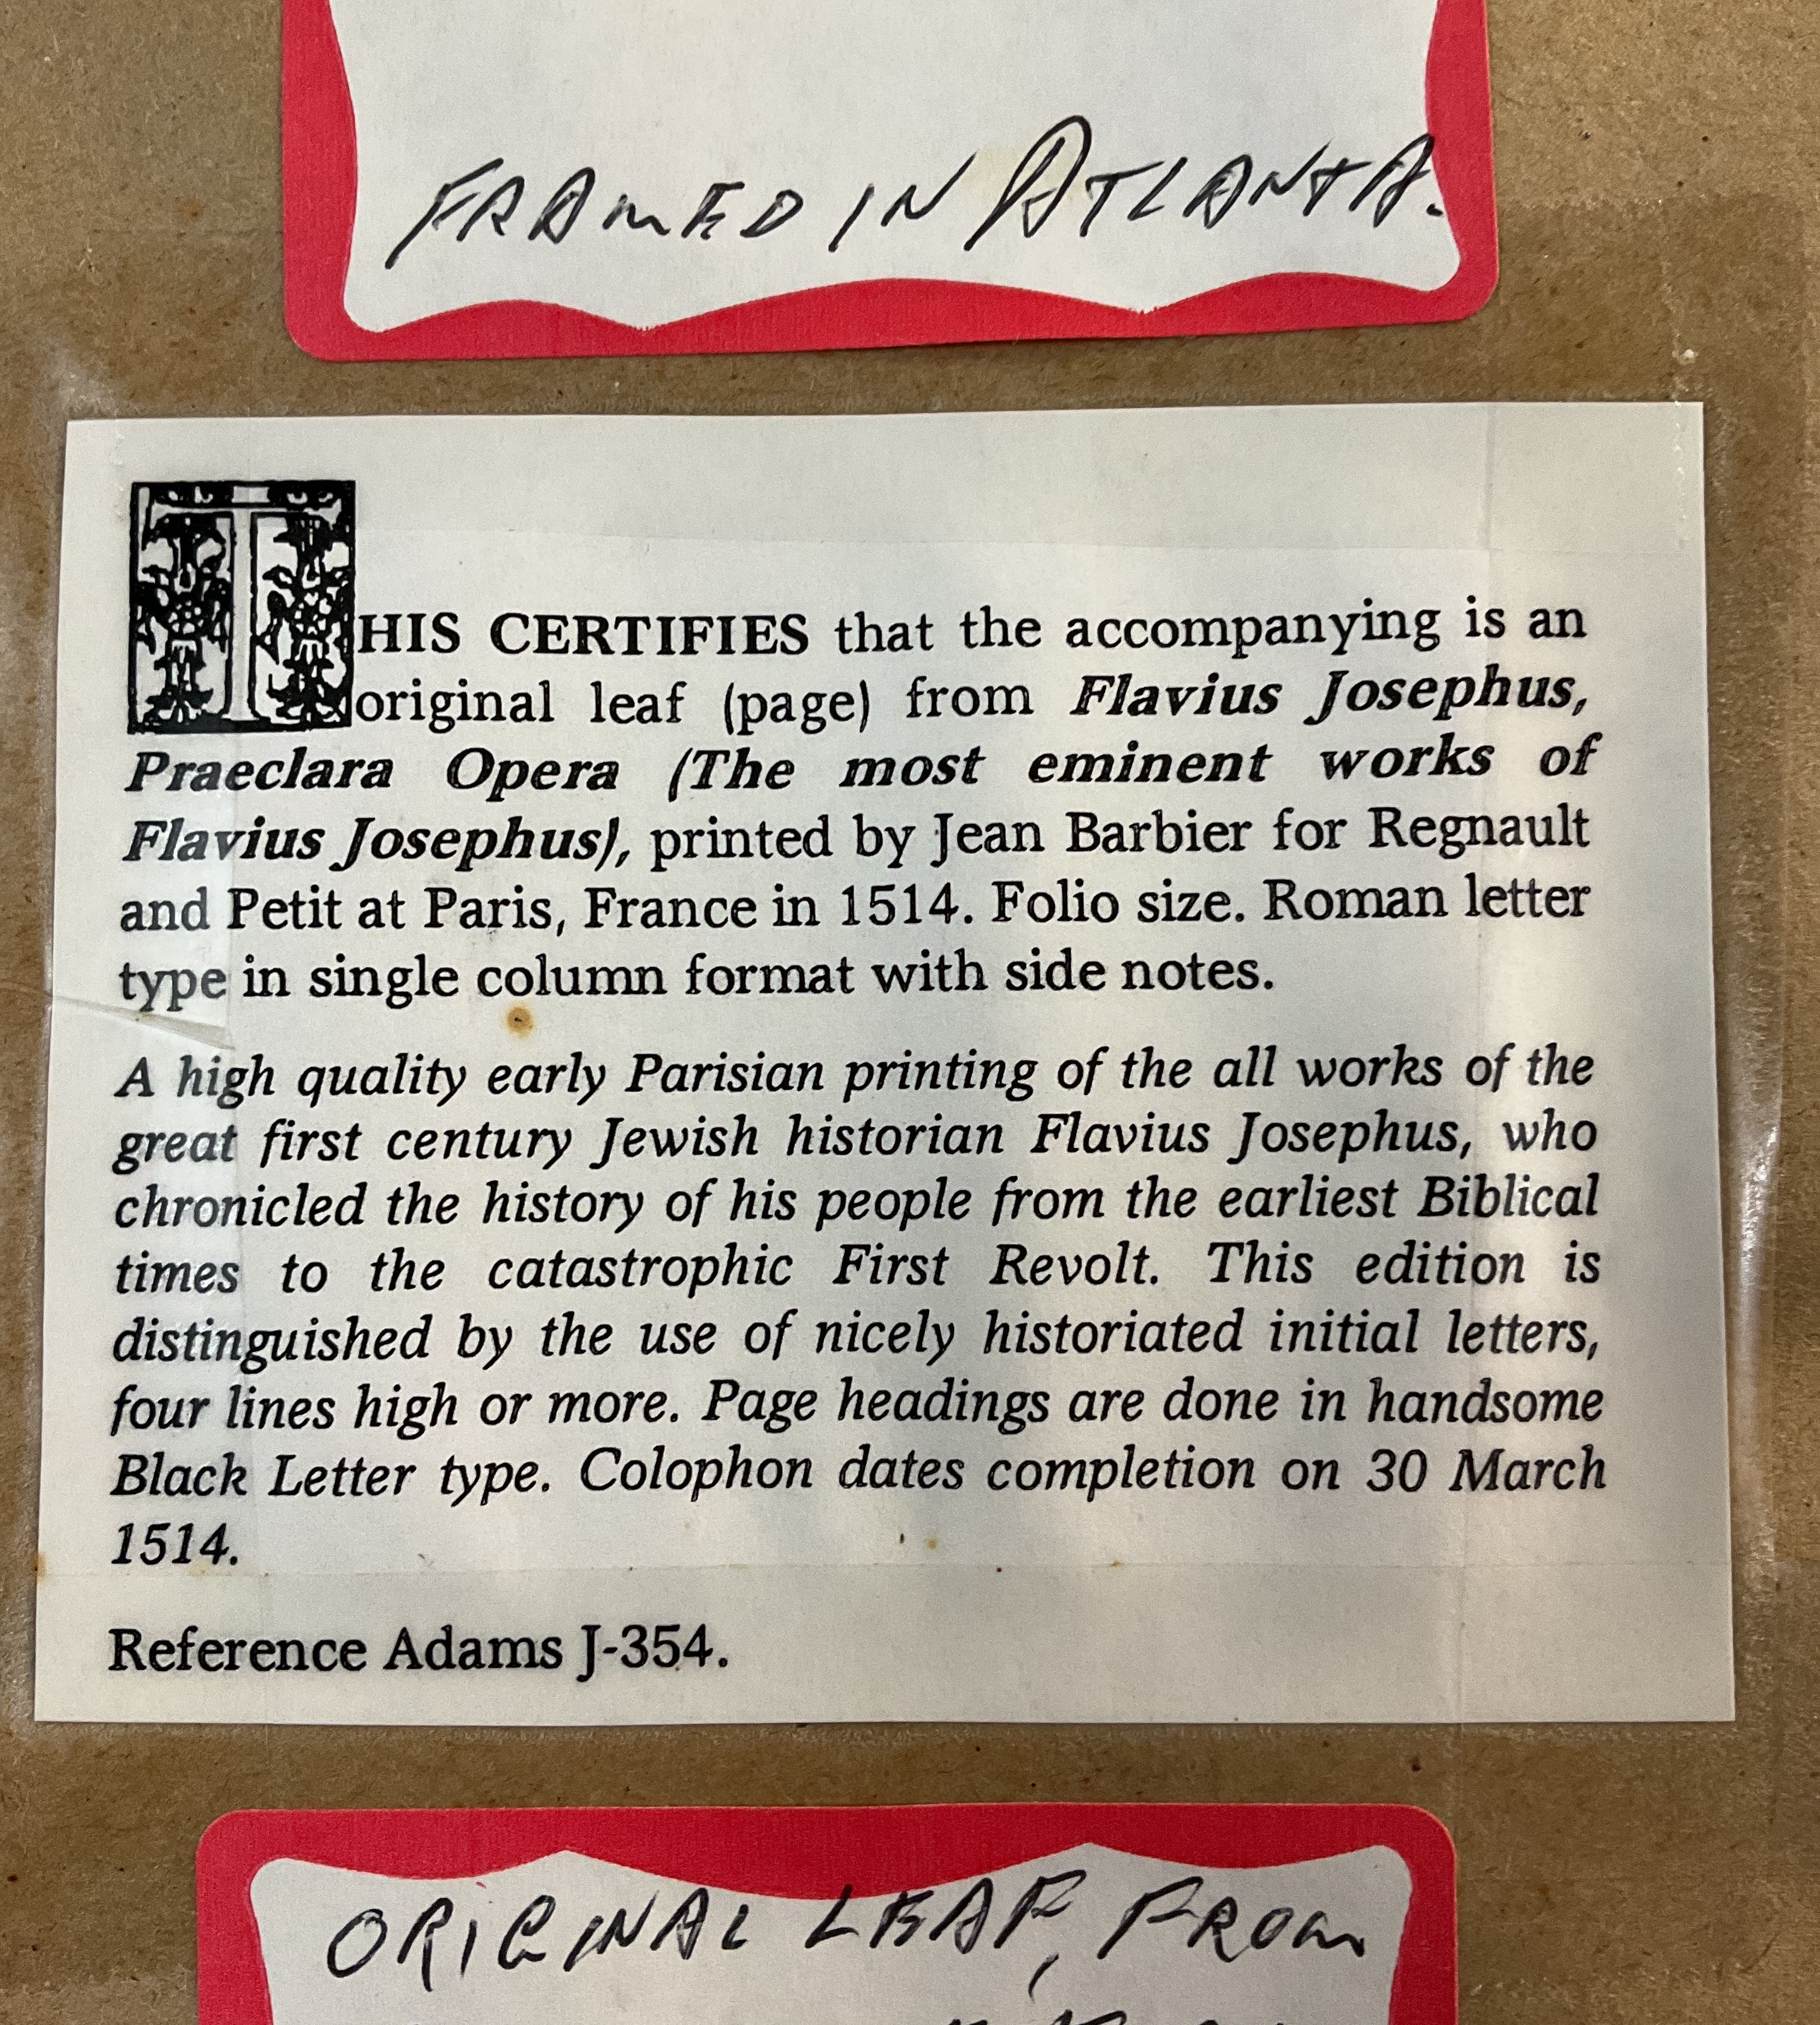 FRAMED IN ATLANTA.
THIS CERTIFIES that the accompanying is an
original leaf (page) from Flavius Josephus,
Praeclara Opera (The most eminent works of
Flavius Josephus), printed by Jean Barbier for Regnault
and Petit at Paris, France in 1514. Folio size. Roman letter
type in single column format with side notes.
A high quality early Parisian printing of the all works of the
great first century Jewish historian Flavius Josephus, who
chronicled the history of his people from the earliest Biblical
times to the catastrophic First Revolt. This edition is
distinguished by the use of nicely historiated initial letters,
four lines high or more. Page headings are done in handsome
Black Letter type. Colophon dates completion on 30 March
1514.
Reference Adams J-354.
ORIGINAL LEAF, FROM